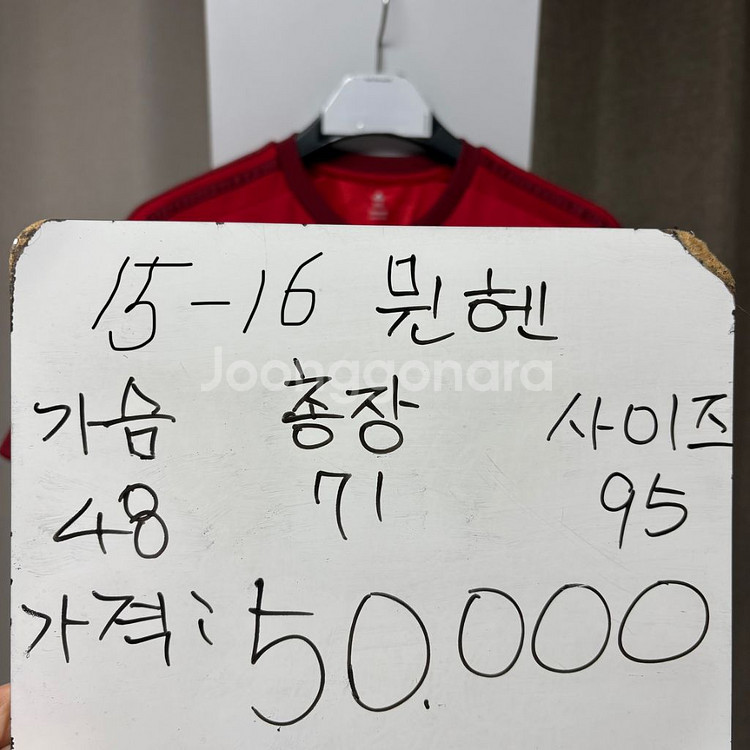 15-16 뮌헨
Joonggonara
가슴 총장 사이즈
48 71 95
가격: 50.000